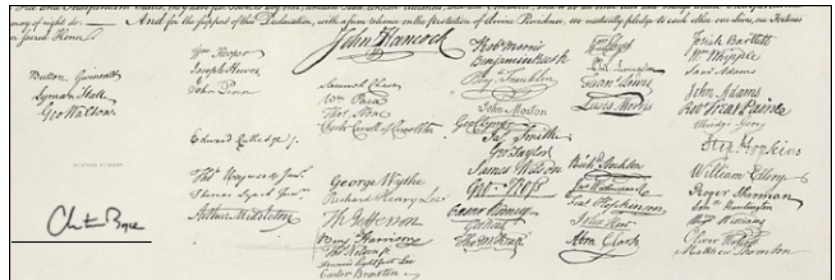 And for the support of this Declaration, with a firm reliance on the protection of divine Providence, we mutually pledge to each other our Lives, our Fortunes
our sacred Honor.
John Hancock
Button Gwinnett
Lyman Hall
Geo Walton.
Wm Hooper
Joseph Hewes,
John Penn
Edward Rutledge /.
Thos Heyward Junr.
Thomas Lynch Junr.
Arthur Middleton
Samuel Chase
Wm Paca
Thos Stone
Charles Carroll of Carrollton
George Wythe
Richard Henry Lee
Th Jefferson
Benj Harrison
Thos Nelson jr.
Francis Lightfoot Lee
Carter Braxton
Robt Morris
Benjamin Rush
Benj. Franklin
John Morton
Geo Clymer
Jas. Smith
Geo. Taylor
James Wilson
Geo. Ross
Caesar Rodney
Geo Read
Tho M:Kean
Wm Floyd
Phil. Livingston
Frans. Lewis
Lewis Morris
Richd. Stockton
Jno Witherspoon
Fras. Hopkinson
John Hart
Abra Clark
Josiah Bartlett
Wm Whipple
Saml Adams
John Adams
Robt Treat Paine
Elbridge Gerry
Step. Hopkins
William Ellery
Roger Sherman
Saml Huntington
Wm Williams
Oliver Wolcott
Matthew Thornton